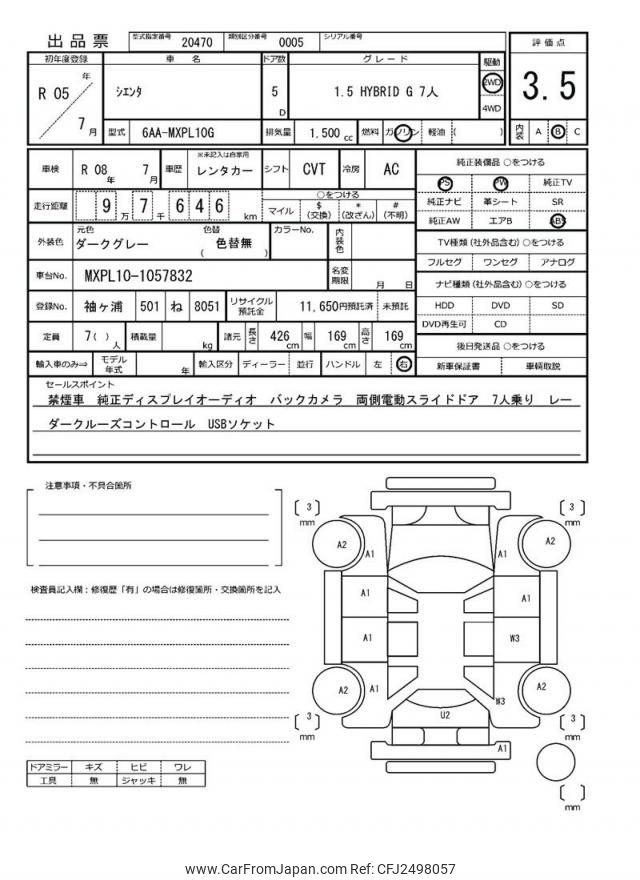 出品票 型式指定番号 20470 類別区分番号 0005 シリアル番号
評価点
3.5
内装 A B C
初年度登録 車名 ドア数 グレード 駆動
R 05 年 7 月 シエンタ 5 D 1.5 HYBRID G 7人 2WD 4WD
型式 6AA-MXPL10G 排気量 1,500 cc 燃料 ガソリン 軽油 ( )
車検 R 08 年 7 月 車歴 ※未記入は自家用 レンタカー シフト CVT 冷房 AC
走行距離 9 万 7 千 6 4 6 km ○をつける マイル $(交換) *(改ざん) #(不明)
外装色 元色 ダークグレー 色替 ( 色替無 ) カラーNo. 内装色
車台No. MXPL10-1057832 名変期限 月 日
登録No. 袖ヶ浦 501 ね 8051 リサイクル預託金 11,650円預託済 未預託
定員 7( ) 人 積載量 kg 諸元 長さ 426 cm 幅 169 cm 高さ 169 cm
輸入車のみ⇒ モデル年式 年 輸入区分 ディーラー 並行 ハンドル 左 右
純正装備品 ○をつける
PS PW 純正TV
純正ナビ 革シート SR
純正AW エアB ABS
TV種類(社外品含む)○をつける
フルセグ ワンセグ アナログ
ナビ種類(社外品含む)○をつける
HDD DVD SD
DVD再生可 CD
後日発送品 ○をつける
新車保証書 車輌取説
セールスポイント
禁煙車 純正ディスプレイオーディオ バックカメラ 両側電動スライドドア 7人乗り レー
ダークルーズコントロール USBソケット
注意事項・不具合箇所
検査員記入欄：修復歴「有」の場合は修復箇所・交換箇所を記入
ドアミラー キズ ヒビ ワレ
工具 無 ジャッキ 無
[ 3 ] mm [ 3 ] mm
A2 A1 A1 A2
A1 A1
A1 W3
A2 A1 W3 A2
U2
[ 3 ] mm [ 3 ] mm
A1
[ ] mm
www.CarFromJapan.com Ref: CFJ2498057